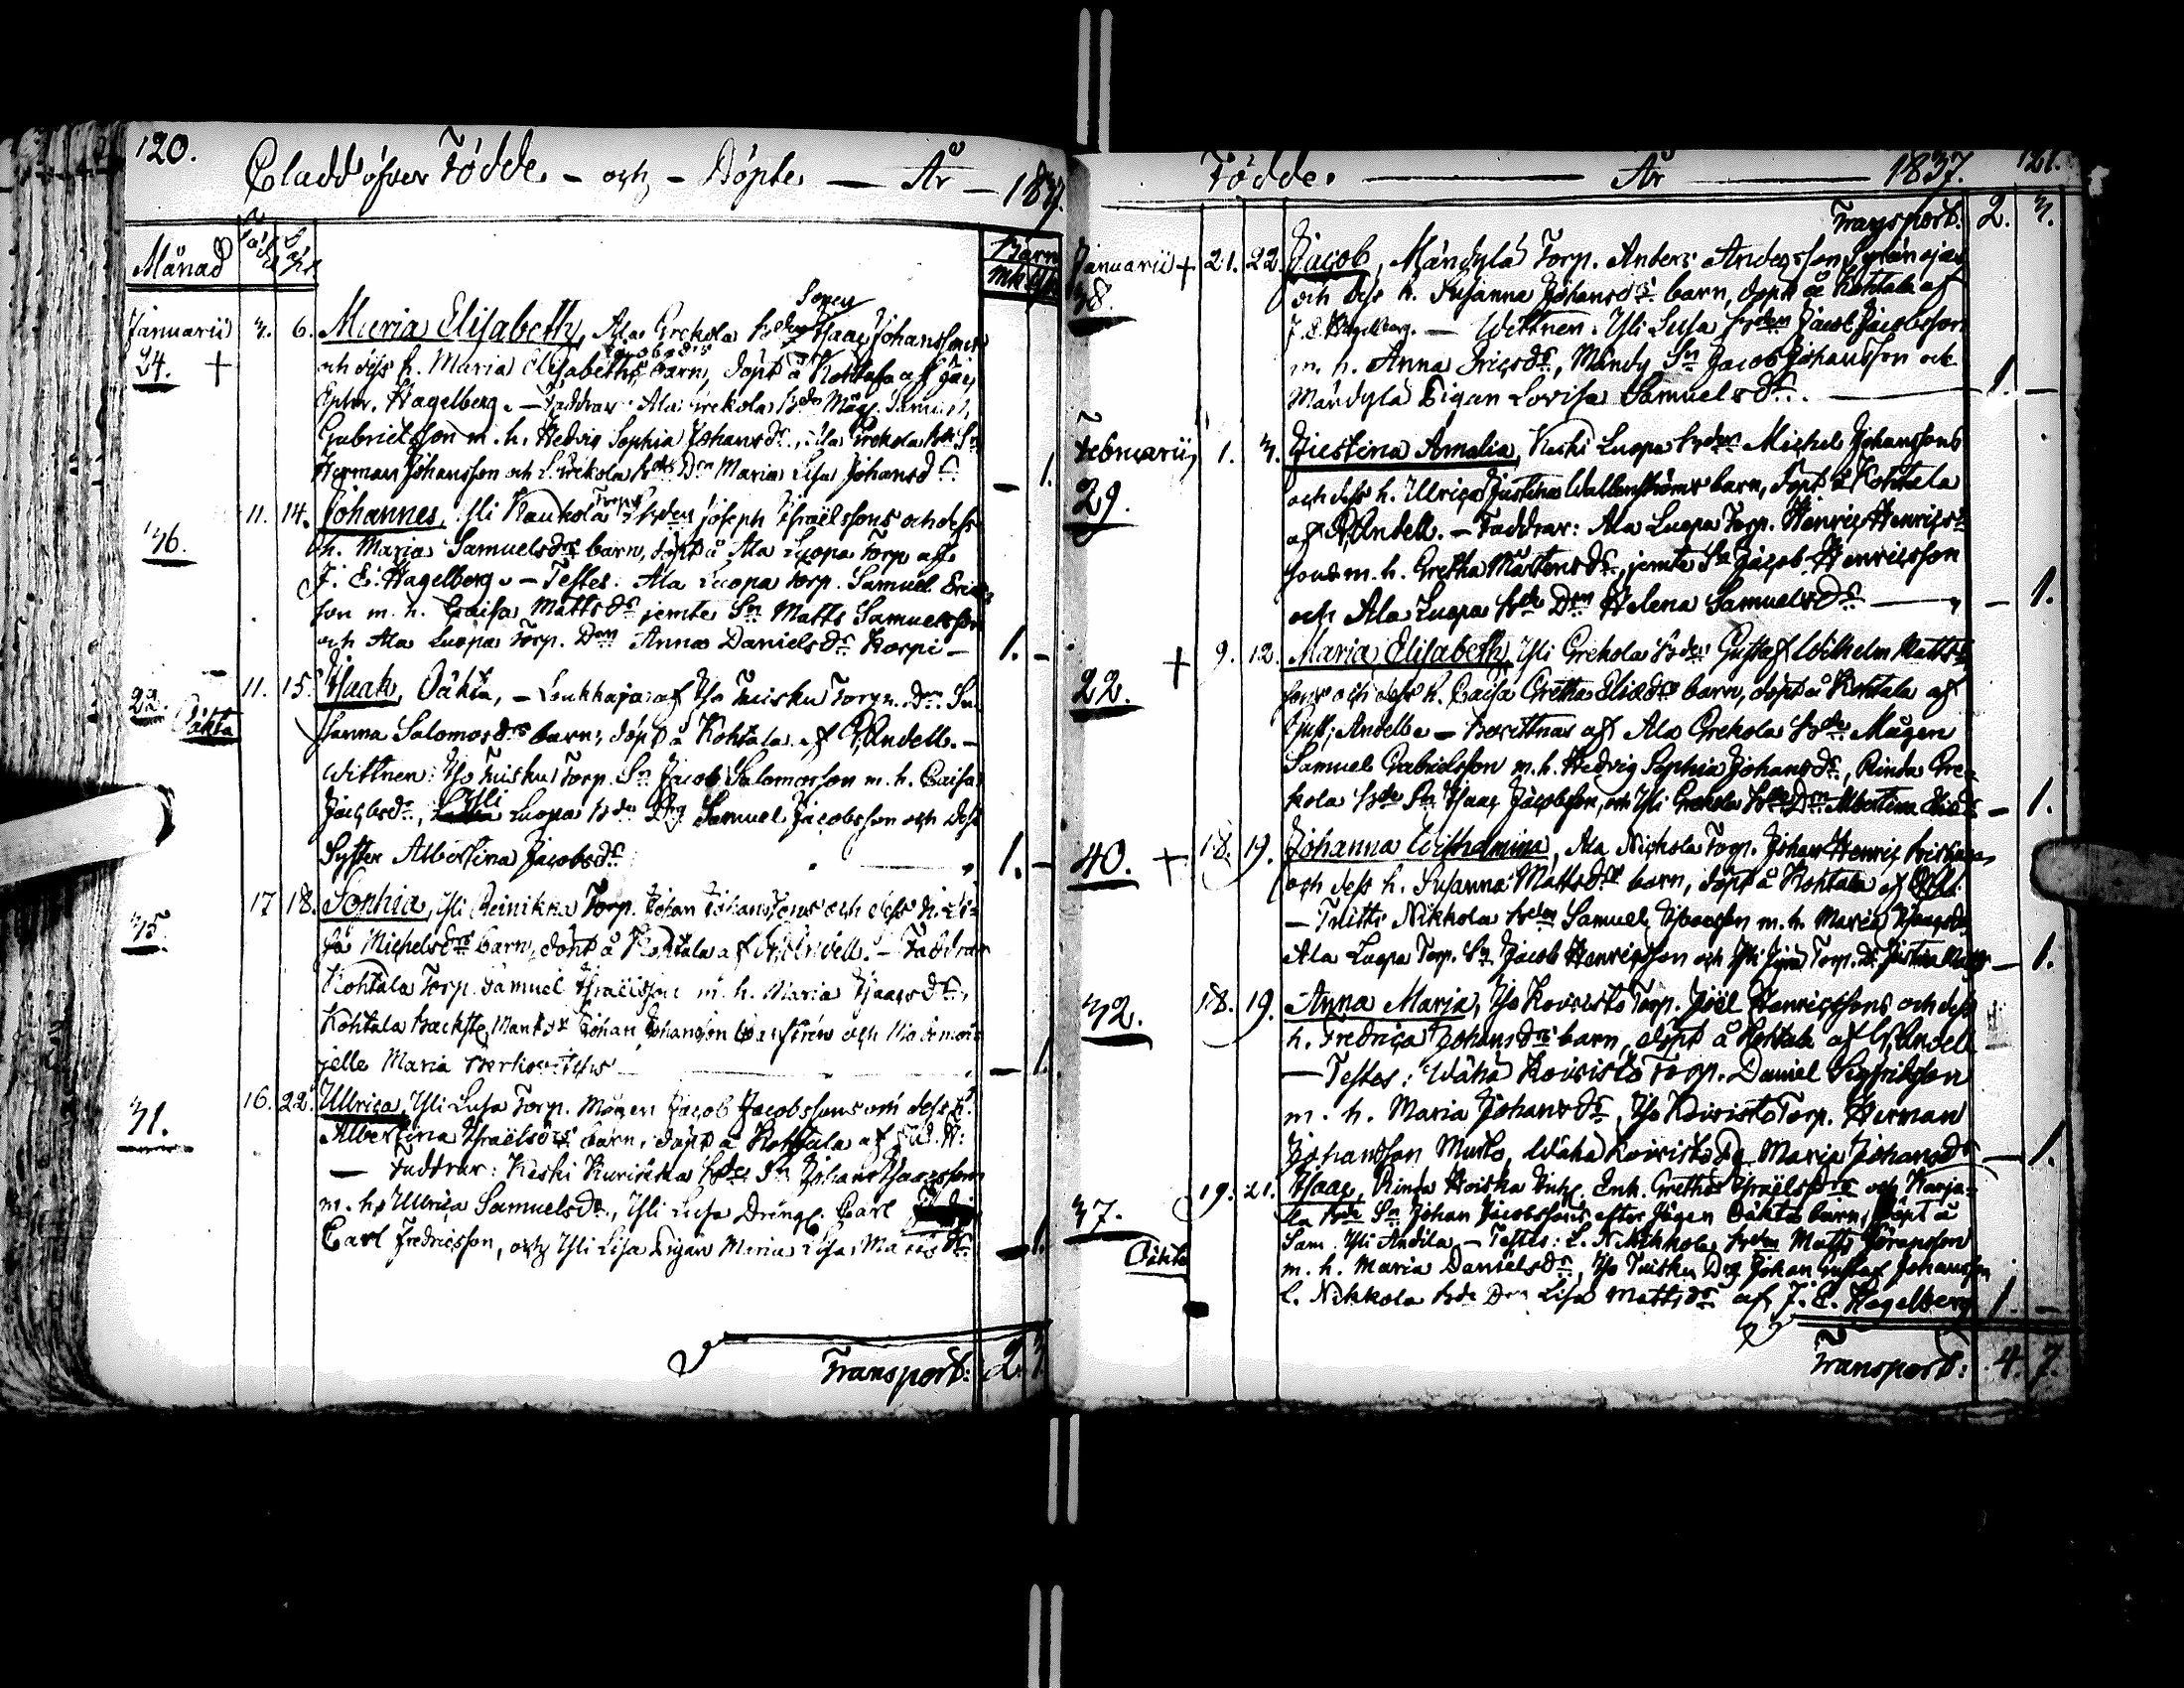 120.
Cladd öfver Födde - och - Döpte — År - 1837.
Månad
Barn
Mk Qk
Januarii 3. 6. Maria Elisabeth, Ala Grekola bden Sonen Isaac Johanssons
24. + och dess h. Maria Elisabeths barn, döpt å Kohtala af Jac.
Ephr. Hagelberg. — Faddrar: Ala Grekola bden Måg. Samuel
Gabrielsson m. h. Hedvig Sophia Johansdr, Ala Grekola bde Sn
Herman Johansson och L. Grekola bden Dn Maria Lisa Johansdr — 1.
11. 14. Johannes, Yli Kaukola bden Joseph Israëlssons och dess
36. h. Maria Samuelsdrs barn, döpt å Ala Luopa Torp af
J. E. Hagelberg. — Testes: Ala Luopa Torp. Samuel Erics
son m. h. Caisa Mattsdr jemte Sn Matts Samuelsson
och Ala Luopa Torp. Dnn Anna Danielsdr Korpi — 1. —
11. 15. Isaak, Oäkta, - Loukkaja af Iso Tuisku Torpn. Dnn Su
22. Oäkta sanna Salomosdrs barn, döpt å Kohtala af G. Andell. —
Wittnen: Iso Tuisku Torp. Sn Jacob Salomonsson m. h. Caisa
Jacobsdr, Yli Luopa bden Drg Samuel Jacobsson och dess
Syster Albertina Jacobsdr 1. —
17 18. Sophia, Yli Reinikka Torp. Johan Johanssons och dess h. Li-
35. sa Michelsdrs barn, döpt å Kohtala af G. Andell. — Faddrar
Kohtala Torp. Samuel Israëlsson m. h. Maria Isaacsdr,
Kohtala Backst. Mant Johan Johansson och Mademoi-
selle Maria — 1.
16. 22. Ullrica, Yli Lusa Torp. Mågen Jacob Jacobssons och dess h.
31. Albertina Israëlsdrs barn, döpt å Kohtala af
— Faddrar: Keski Kurikka bden Sn Johan Isaacsson
m. h. Ullrica Samuelsdr, Yli Lusa Drängen Carl
Carl Fredricsson, och Yli Lisa Pigan Maria Lisa Mattsdr — 1.
Transport: 2. 3.
Födde. — År — 1837. 121.
Transport: 2. 3.
Januarii + 21. 22. Jacob, Mändylä Torp. Anders Andersson
38. och dess h. Susanna Johansdrs barn, döpt å Kohtala af
J. E. Hagelberg. — Wittnen: Yli Lusa bden Jacob Jacobsson
m. h. Anna Ericsdr, Mändy Sn Jacob Johansson och
Mändylä Pigan Lovisa Samuelsdr. — 1. —
Februarii 1. 3. Justina Amalia, Keski Luopa bden Michel Johanssons
29. och dess h. Ulrica Justina Wallenströms barn, döpt å Kohtala
af G. Andell. — Faddrar: Ala Luopa Torp. Henric Henrics-
sons m. h. Gretha Mårtensdr, jemte Sn Jacob Henricsson
och Ala Luopa bde Dnn Helena Samuelsdr — 1.
+ 9. 12. Maria Elisabeth, Yli Grekola bden Gustaf Wilhelm Matts-
22. sons och dess h. Caisa Gretha Eliaedrs barn, döpt å Kohtala af
Gust. Andell. — Bevittnas af Ala Grekola bden Mågen
Samuel Gabrielsson m. h. Hedvig Sophia Johansdr, Rinda Gre-
kola bde Sn Isaac Jacobsson, och Yli Grekola bde Dnn Albertina Eliaedr — 1.
40. + 18. 19. Johanna Wilhelmina, Ala Nickola Torp. Johan Henric
och dess h. Susanna Mattsdrs barn, döpt å Kohtala af
— Tuitti Nikkola bden Samuel Isaacsson m. h. Maria Isaacsdr,
Ala Luopa Torp. Sn Jacob Henricsson och Yli Torp. Dr Justina Mattsdr — 1.
32. 18. 19. Anna Maria, Iso Koivisto Torp. Joël Henricssons och dess
h. Fredrica Johansdrs barn, döpt å Kohtala af G. Andell
— Testes: Wähä Koivisto Torp. Daniel Sigfridsson
m. h. Maria Johansdr, Iso Koivisto Torp. Herman
Johansson Musto, Wähä Koivisto Dn Maria Johansdr — 1.
19. 21. Isaac, Rinda Hoiska Enk. Grethas Israëlsdrs och Karja-
37. la bde Sn Johan Jacobssons efter sägen Oäkta barn, döpt å
Oäkta Sam. Yli Andila, — Testes: L. N Nikkola bden Matts Göransson
m. h. Maria Danielsdr, Iso Tuisku Drg Johan Gustaf Johansson
L. Nikkola bde Dnn Lisa Mattsdr af J. E. Hagelberg 1. —
Transport: 4. 7.